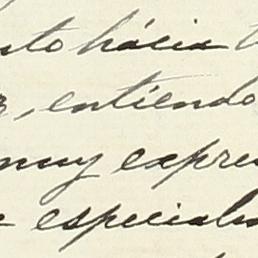 nto hácia
, entiendo
muy expre
especialm